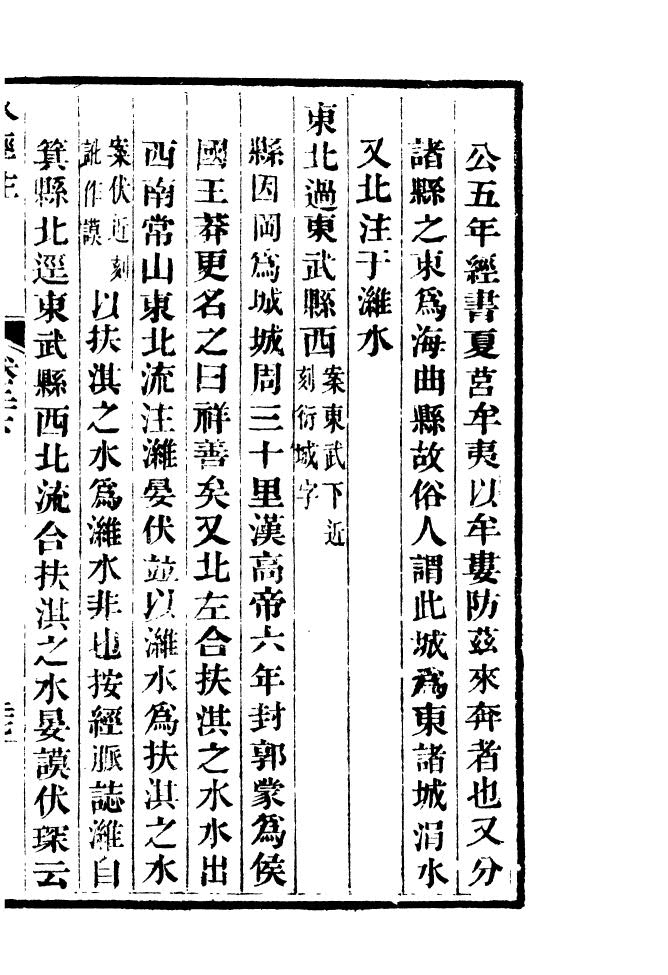 公五年經書夏莒牟夷以牟婁防茲來奔者也又分
諸縣之東爲海曲縣故俗人謂此城爲東諸城涓水
又北注于濰水
東北過東武縣西案東武下近刻衍城字
縣因岡爲城城周三十里漢高帝六年封郭蒙爲侯
國王莽更名之曰祥善矣又北左合扶淇之水水出
西南常山東北流注濰晏伏並以濰水爲扶淇之水
案伏近刻訛作謨以扶淇之水爲濰水非也按經脈誌濰自
箕縣北逕東武縣西北流合扶淇之水晏謨伏琛云
水經注